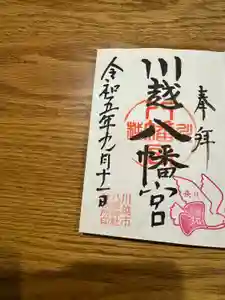 奉拝
川越八幡宮
令和五年九月十一日
川越市